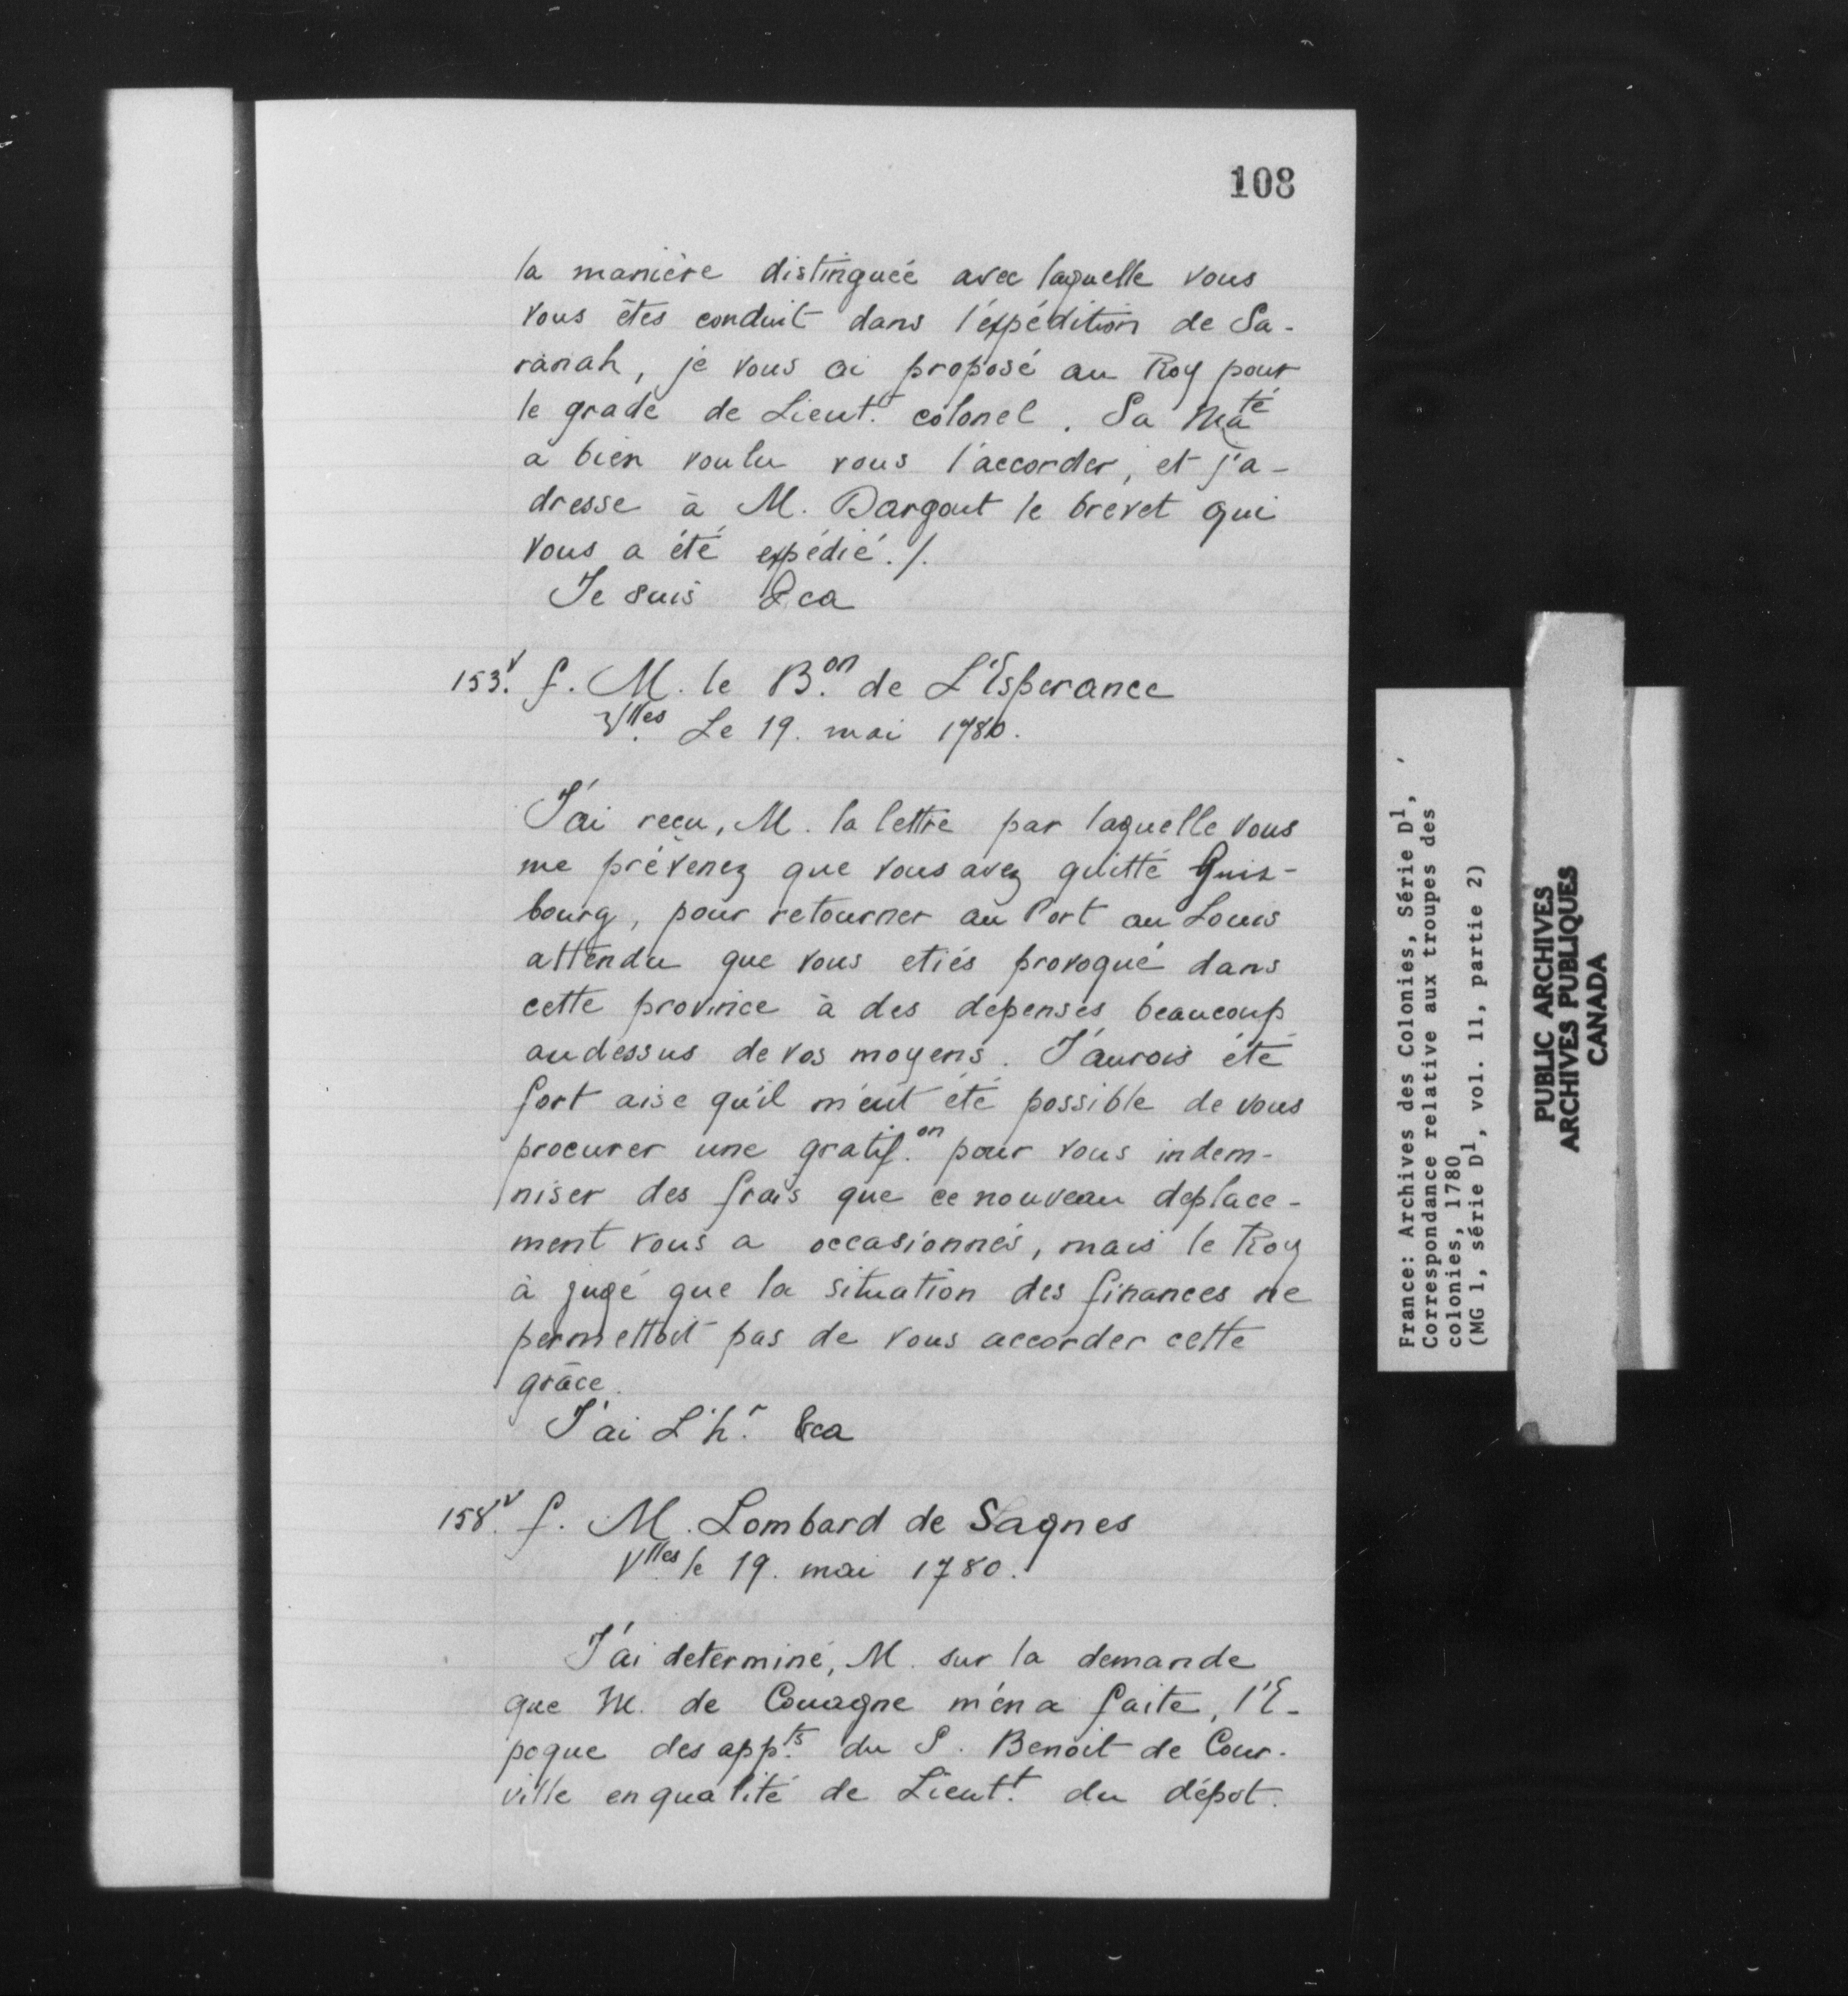 108
la manière distinguée avec laquelle vous
vous êtes conduit dans l'expédition de Sa-
vanah, je vous ai proposé au Roy pour
le grade de Lieutt. colonel. Sa Maté
a bien voulu vous l'accorder, et j'a-
dresse à M. Dargout le brevet qui
vous a été expédié./.
Je suis &ca
153.v f. M. le B.on de L'Esperance
Vlles Le 19. mai 1780.
J'ai reçu, M. la lettre par laquelle vous
me prévenez que vous avez quitté Guis-
bourg, pour retourner au Port au Louis
attendu que vous etiés provoqué dans
cette province à des dépenses beaucoup
audessus de vos moyens. J'aurois été
fort aise qu'il m'eut été possible de vous
procurer une gratif.on pour vous indem-
niser des frais que ce nouveau deplace-
ment vous a occasionnés, mais le Roy
à jugé que la situation des finances ne
permettoit pas de vous accorder cette
grâce.
J'ai L'h.r &ca
158.v f. M. Lombard de Sagnes
Vlles le 19. mai 1780.
J'ai determiné, M. sur la demande
que M. de Couagne m'en a faite, l'E-
poque des app.ts du S. Benoit de Cour-
ville en qualité de Lieutt. du dépot.
France: Archives des Colonies, Série D1,
Correspondance relative aux troupes des
colonies, 1780
(MG 1, série D1, vol. 11, partie 2)
PUBLIC ARCHIVES
ARCHIVES PUBLIQUES
CANADA